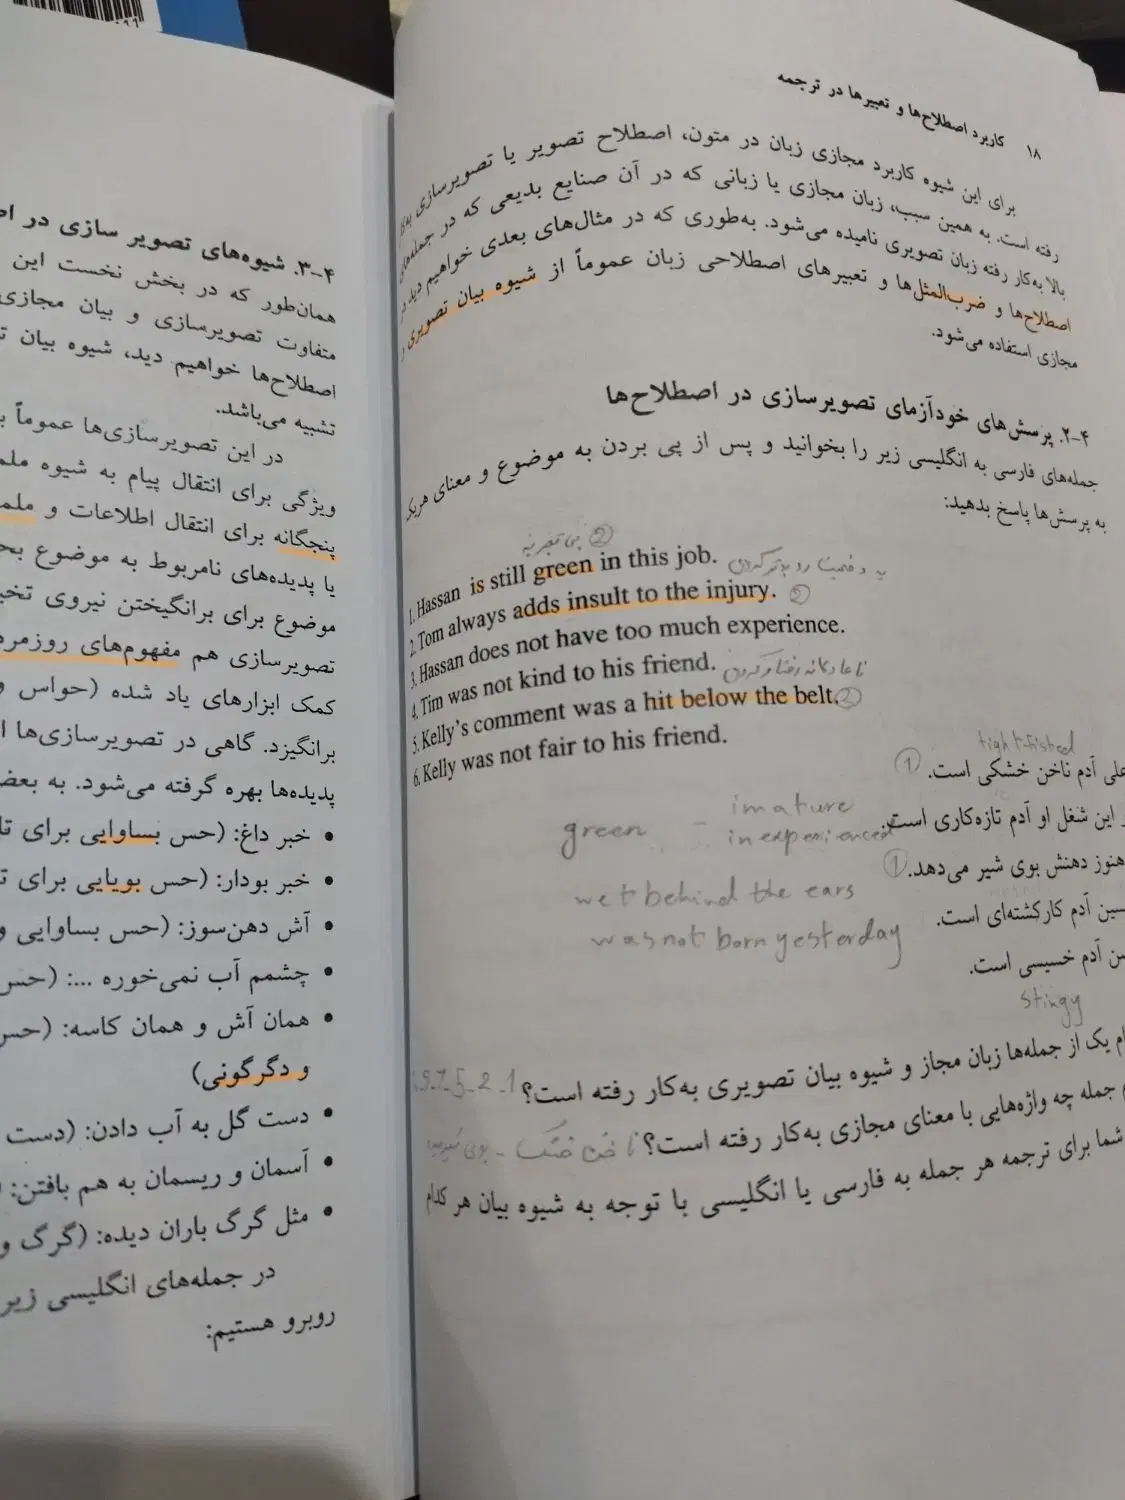 ۱۸ کاربرد اصطلاح‌ها و تعبیرها در ترجمه
برای این شیوه کاربرد مجازی زبان در متون، اصطلاح تصویر یا تصویرسازی به‌کار
رفته است. به همین سبب، زبان مجازی یا زبانی که در آن صنایع بدیعی که در جمله‌های
بالا به‌کار رفته زبان تصویری نامیده می‌شود. به‌طوری که در مثال‌های بعدی خواهیم دید در
اصطلاح‌ها و ضرب‌المثل‌ها و تعبیرهای اصطلاحی زبان عموماً از شیوه بیان تصویری
مجازی استفاده می‌شود.
۴-۲. پرسش‌های خودآزمای تصویرسازی در اصطلاح‌ها
جمله‌های فارسی به انگلیسی زیر را بخوانید و پس از پی بردن به موضوع و معنای هریک
به پرسش‌ها پاسخ بدهید:
بی تجربه ②
1. Hassan is still green in this job.
2. Tom always adds insult to the injury. ②
3. Hassan does not have too much experience.
4. Tim was not kind to his friend. ناعادلانه رفتار کردن
5. Kelly's comment was a hit below the belt. ②
6. Kelly was not fair to his friend.
tight-fisted
علی آدم ناخن خشکی است. ①
این شغل او آدم تازه‌کاری است.
هنوز دهنش بوی شیر می‌دهد. ①
آدم کارکشته‌ای است.
آدم خسیسی است.
stingy
green - imature
inexperienced
wet behind the ears
was not born yesterday
یک از جمله‌ها زبان مجاز و شیوه بیان تصویری به‌کار رفته است؟ 1-2-5-
جمله چه واژه‌هایی با معنای مجازی به‌کار رفته است؟ ناخن خشک - بوی شیر
شما برای ترجمه هر جمله به فارسی یا انگلیسی با توجه به شیوه بیان هر کدام
۴-۳. شیوه‌های تصویر سازی در
همان‌طور که در بخش نخست این
متفاوت تصویرسازی و بیان مجازی
اصطلاح‌ها خواهیم دید، شیوه بیان
تشبیه می‌باشد.
در این تصویرسازی‌ها عموماً
ویژگی برای انتقال پیام به شیوه
پنجگانه برای انتقال اطلاعات و
یا پدیده‌های نامربوط به موضوع
موضوع برای برانگیختن نیروی
تصویرسازی هم مفهوم‌های روزمره
کمک ابزارهای یاد شده (حواس و
برانگیزد. گاهی در تصویرسازی‌ها
پدیده‌ها بهره گرفته می‌شود. به
• خبر داغ: (حس بساوایی برای
• خبر بودار: (حس بویایی برای
• آش دهن‌سوز: (حس بساوایی و
• چشمم آب نمی‌خوره ...: (حس
• همان آش و همان کاسه: (حس
و دگرگونی)
• دست گل به آب دادن: (دست
• آسمان و ریسمان به هم بافتن:
• مثل گرگ باران دیده: (گرگ و
در جمله‌های انگلیسی زیر
روبرو هستیم: